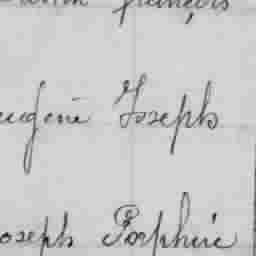 français
eugène Joseph
oseph Porphire